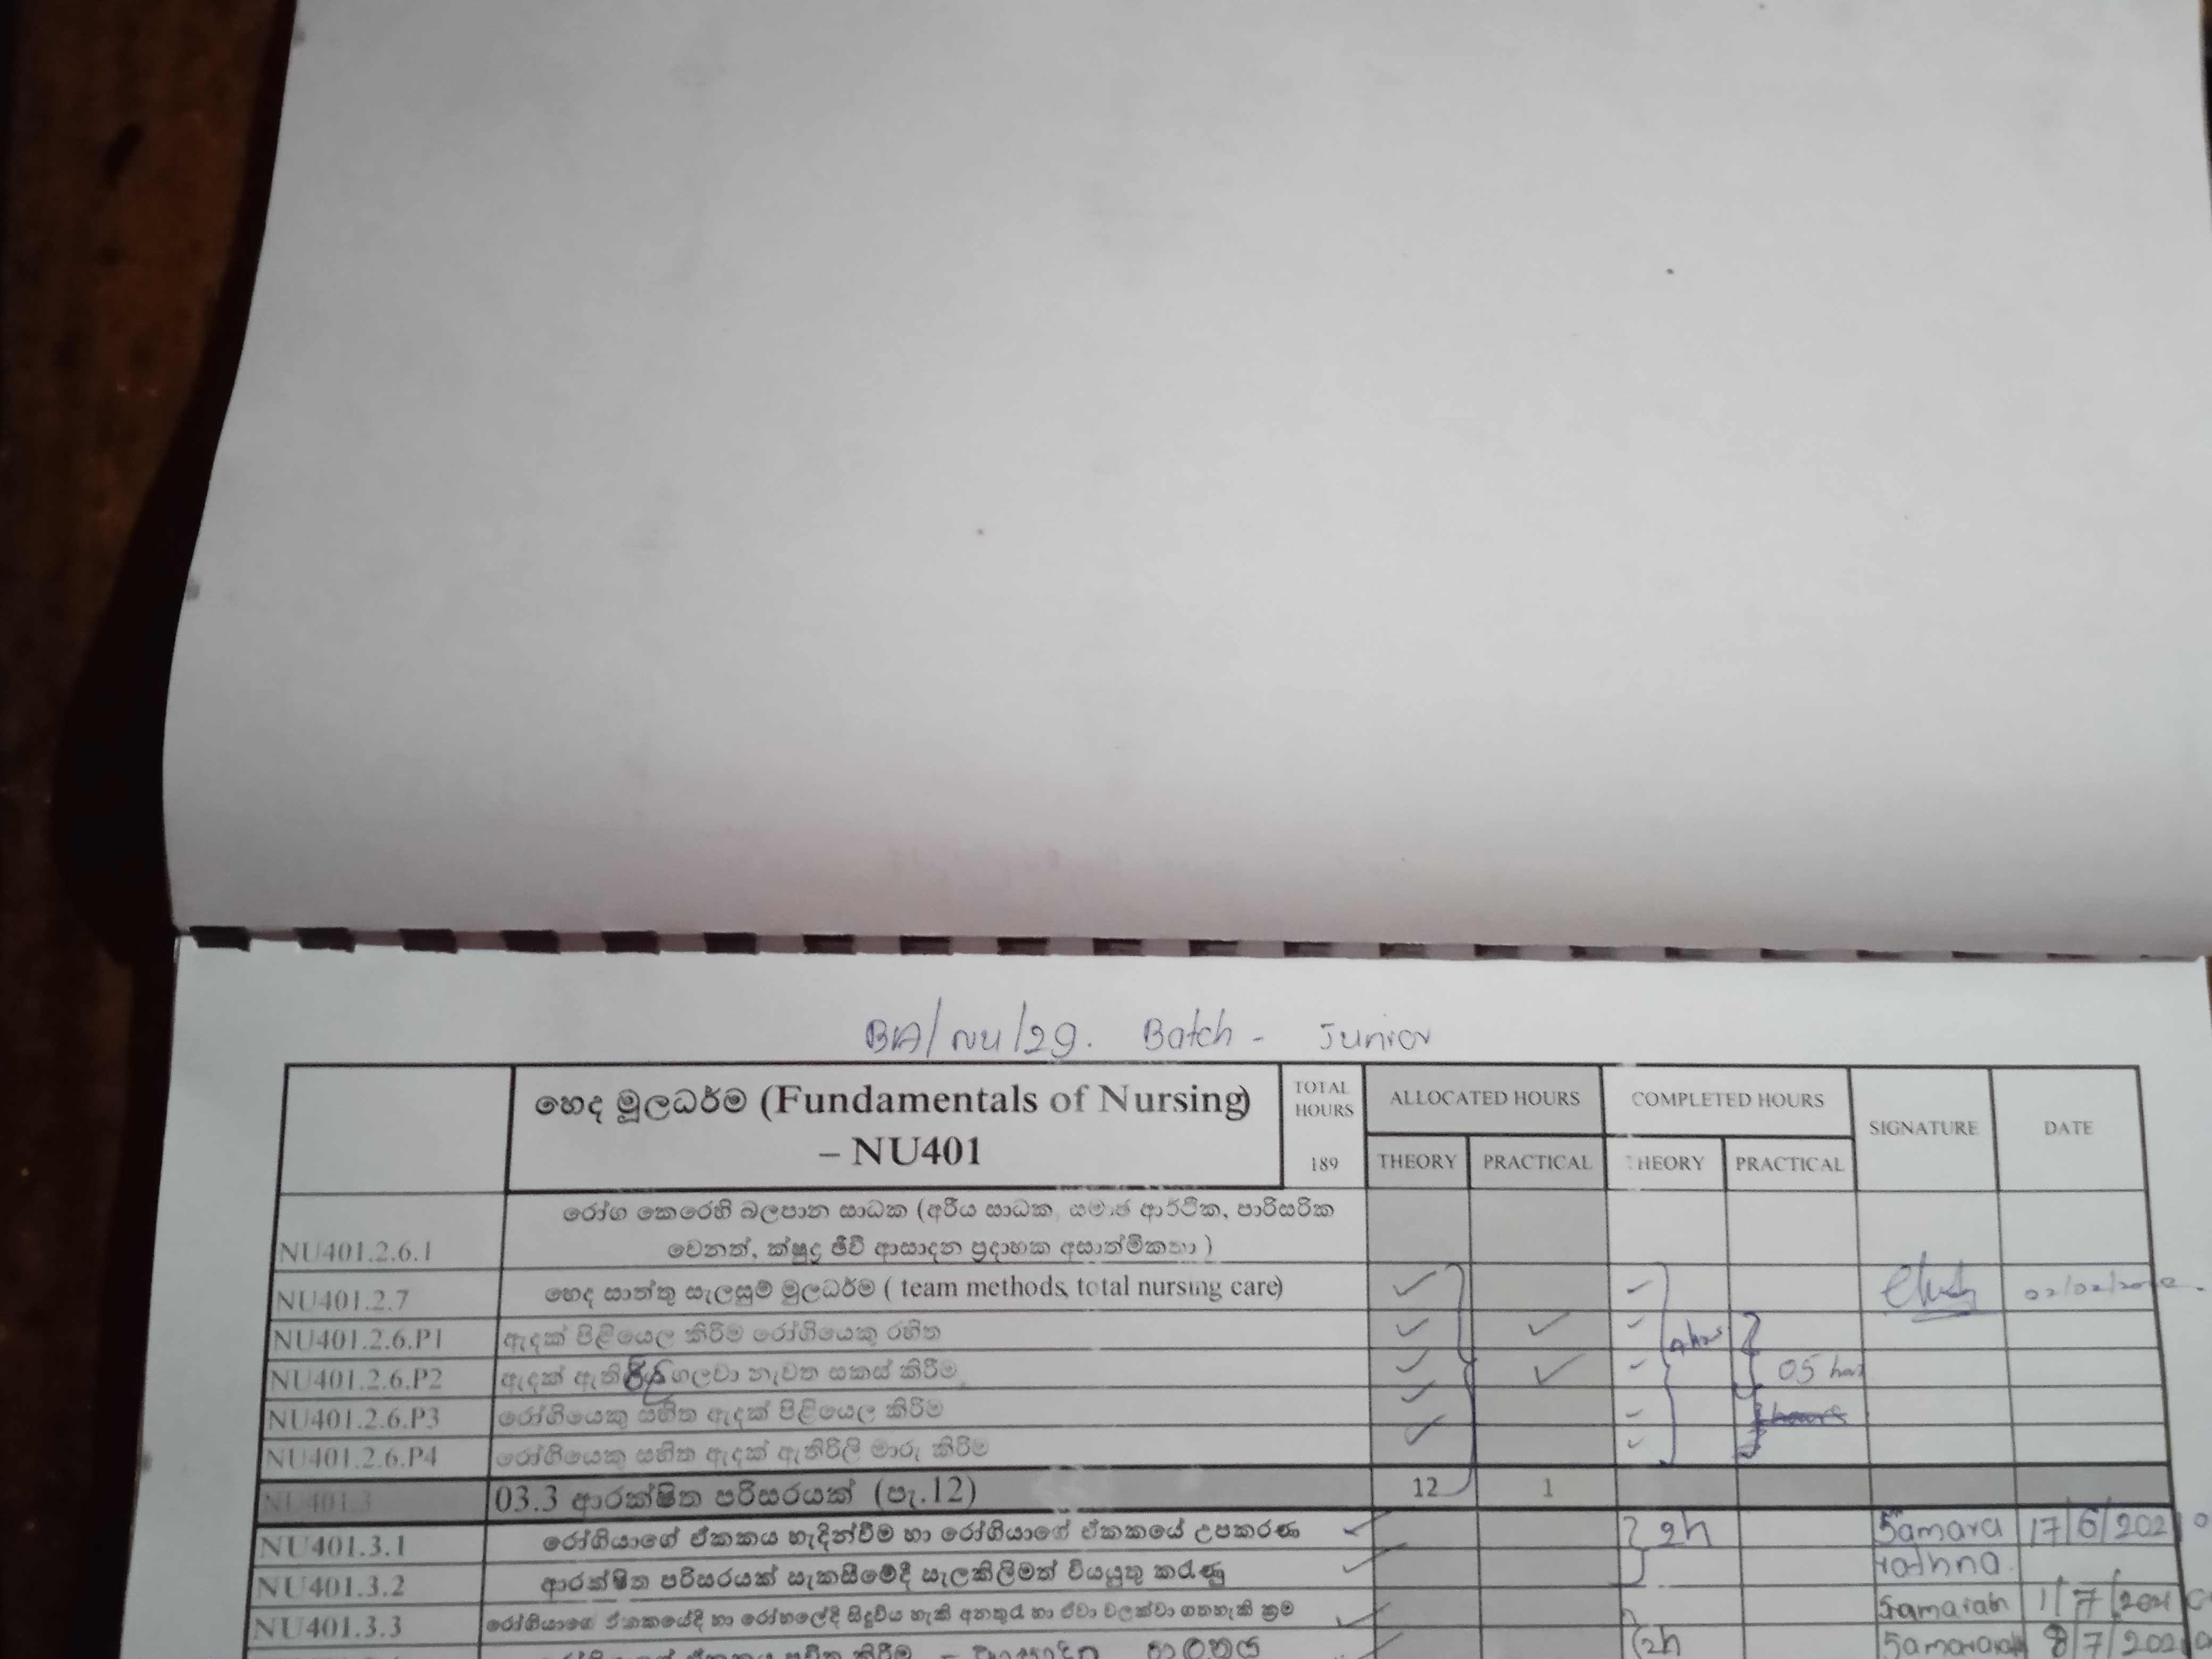 BIA/NU/29. Batch - Junior
හෙද මූලධර්ම (Fundamentals of Nursing)
– NU401
TOTAL HOURS
189
ALLOCATED HOURS
COMPLETED HOURS
SIGNATURE
DATE
THEORY PRACTICAL THEORY PRACTICAL
රෝග කෙරෙහි බලපාන සාධක (අරීය සාධක, සමාජ ආර්ථික, පාරිසරික
NU401.2.6.1 වෙනත්, ක්ෂුද්‍ර ජීවී ආසාදන ප්‍රදාහක අසාත්මිකතා )
NU401.2.7 හෙද සාත්තු සැලසුම් මූලධර්ම ( team methods, total nursing care) ✓ ✓ 02/02/202
NU401.2.6.P1 ඇඳක් පිළියෙල කිරීම රෝගියෙකු රහිත ✓ ✓ ✓ hrs
NU401.2.6.P2 ඇඳක් ඇතිරිලි ගලවා නැවත සකස් කිරීම ✓ ✓ ✓ 05 hrs
NU401.2.6.P3 රෝගියෙකු සහිත ඇඳක් පිළියෙල කිරීම ✓ ✓ hours
NU401.2.6.P4 රෝගියෙකු සහිත ඇඳක් ඇතිරිලි මාරු කිරීම ✓ ✓
NU401.3 03.3 ආරක්ෂිත පරිසරයක් (පැ.12) 12 1
NU401.3.1 රෝගියාගේ ඒකකය හැදින්වීම හා රෝගියාගේ ඒකකයේ උපකරණ ✓ 2h Samara 17/6/202
NU401.3.2 ආරක්ෂිත පරිසරයක් සැකසීමේදී සැලකිලිමත් වියයුතු කරුණු ✓ rathna
NU401.3.3 රෝගියාගේ ඒකකයේදී හා රෝහලේදී සිදුවිය හැකි අනතුරු හා ඒවා වලක්වා ගතහැකි ක්‍රම ✓ Samarah 1/7/2021
කිරීම – පාලනය ✓ 2h 8/7/202